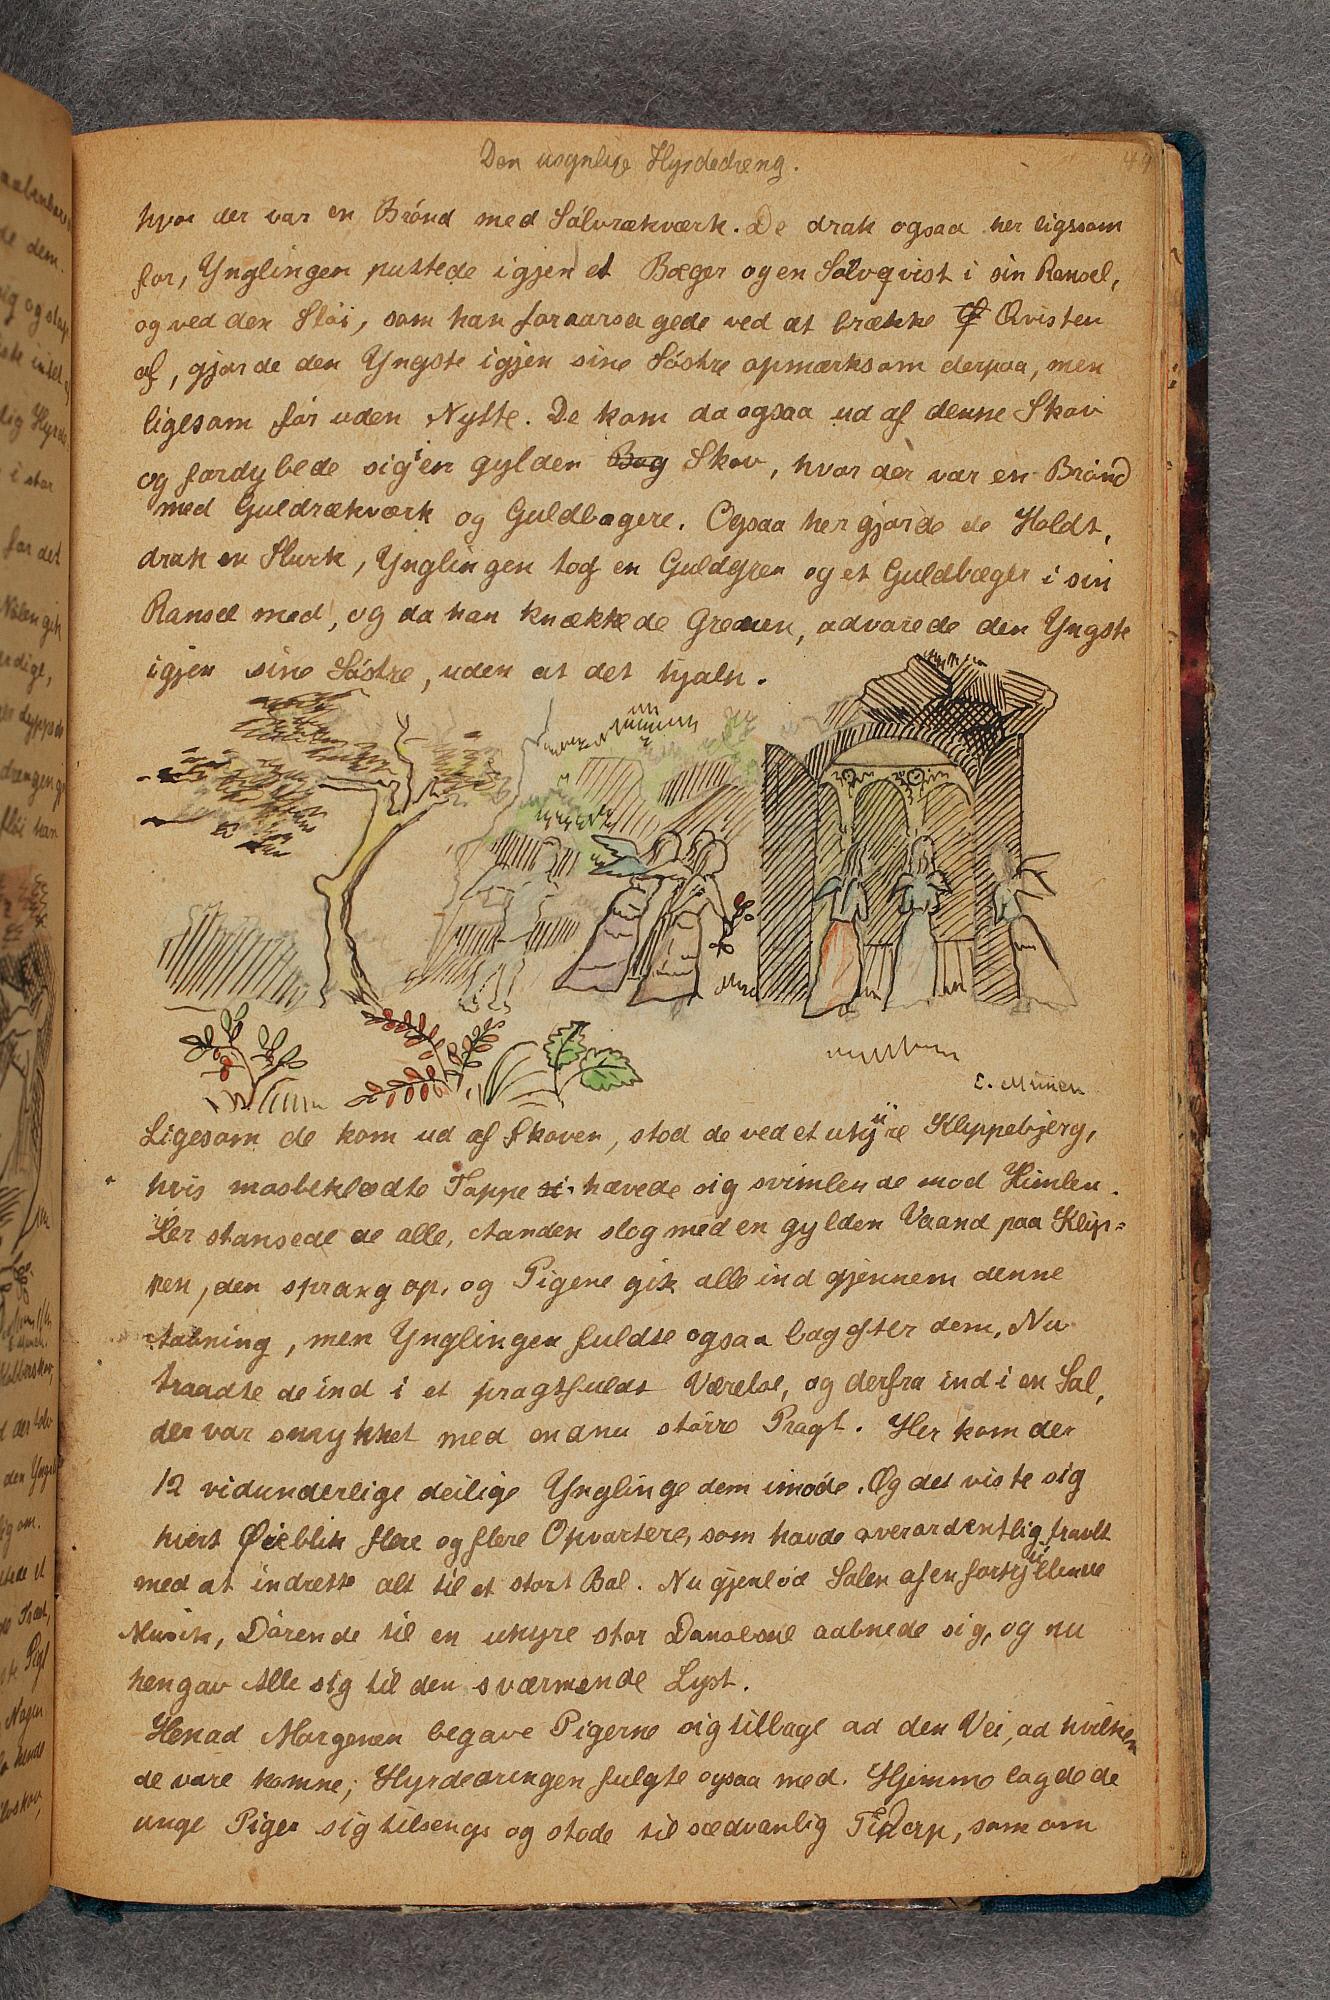 Den usynlige Hyrdedreng.
44
hvor der var en Brönd med Sölvrækværk. De drak ogsaa her ligssom
för, Ynglingen puttede igjen et Bæger og en Sölvqvist i sin Ransel,
og ved den Stöi, som han foraarsagede ved at brække Qvisten
af, gjorde den Yngste igjen sine Söstre opmærksom derpaa, men
ligesom för uden Nytte. De kom da ogsaa ud af denne Skov
og fordybede sig i en gylden Bog Skov, hvor der var en Brönd
med Guldrækværk og Guldbægere. Ogsaa her gjorde de Holdt,
drak en Slurk, Ynglingen tog en Guldgren og et Guldbæger i sin
Ransel med, og da han knækkede Grenen, advarede den Yngste
igjen sine Söstre, uden at det hjalp.
E. Munch
Ligesom de kom ud af Skoven, stod de ved et uhyre Klippebjerg,
hvis mosbeklædte Toppe si hævede sig svimlende mod Himlen.
Her stansede de alle, Aanden slog med en gylden Vaand paa Klip=
pen, den sprang op, og Pigene gik alle ind gjennem denne
Aabning, men Ynglingen fuldte ogsaa bag efter dem. Nu
traadte de ind i et pragtfuldt Værelse, og derfra ind i en Sal,
der var smykket med endnu större Pragt. Her kom der
12 vidunderlige deilige Ynglinge dem imöde. Og det viste sig
hvert Öieblik flere og flere Opvartere, som havde overordentlig travlt
med at indrette alt til et stort Bal. Nu gjenlöd Salen af en fortryllende
Musik, Dörende til en uhyre stor Dansesal aabnede sig, og nu
hengav Alle sig til den sværmende Lyst.
Henad Morgenen begave Pigerne sig tilbage ad den Vei, ad hvilken
de vare komne; Hyrdedrengen fulgte ogsaa med. Hjemme lagde de
unge Piger sig tilsengs og stode til sædvanlig Tid op, som om